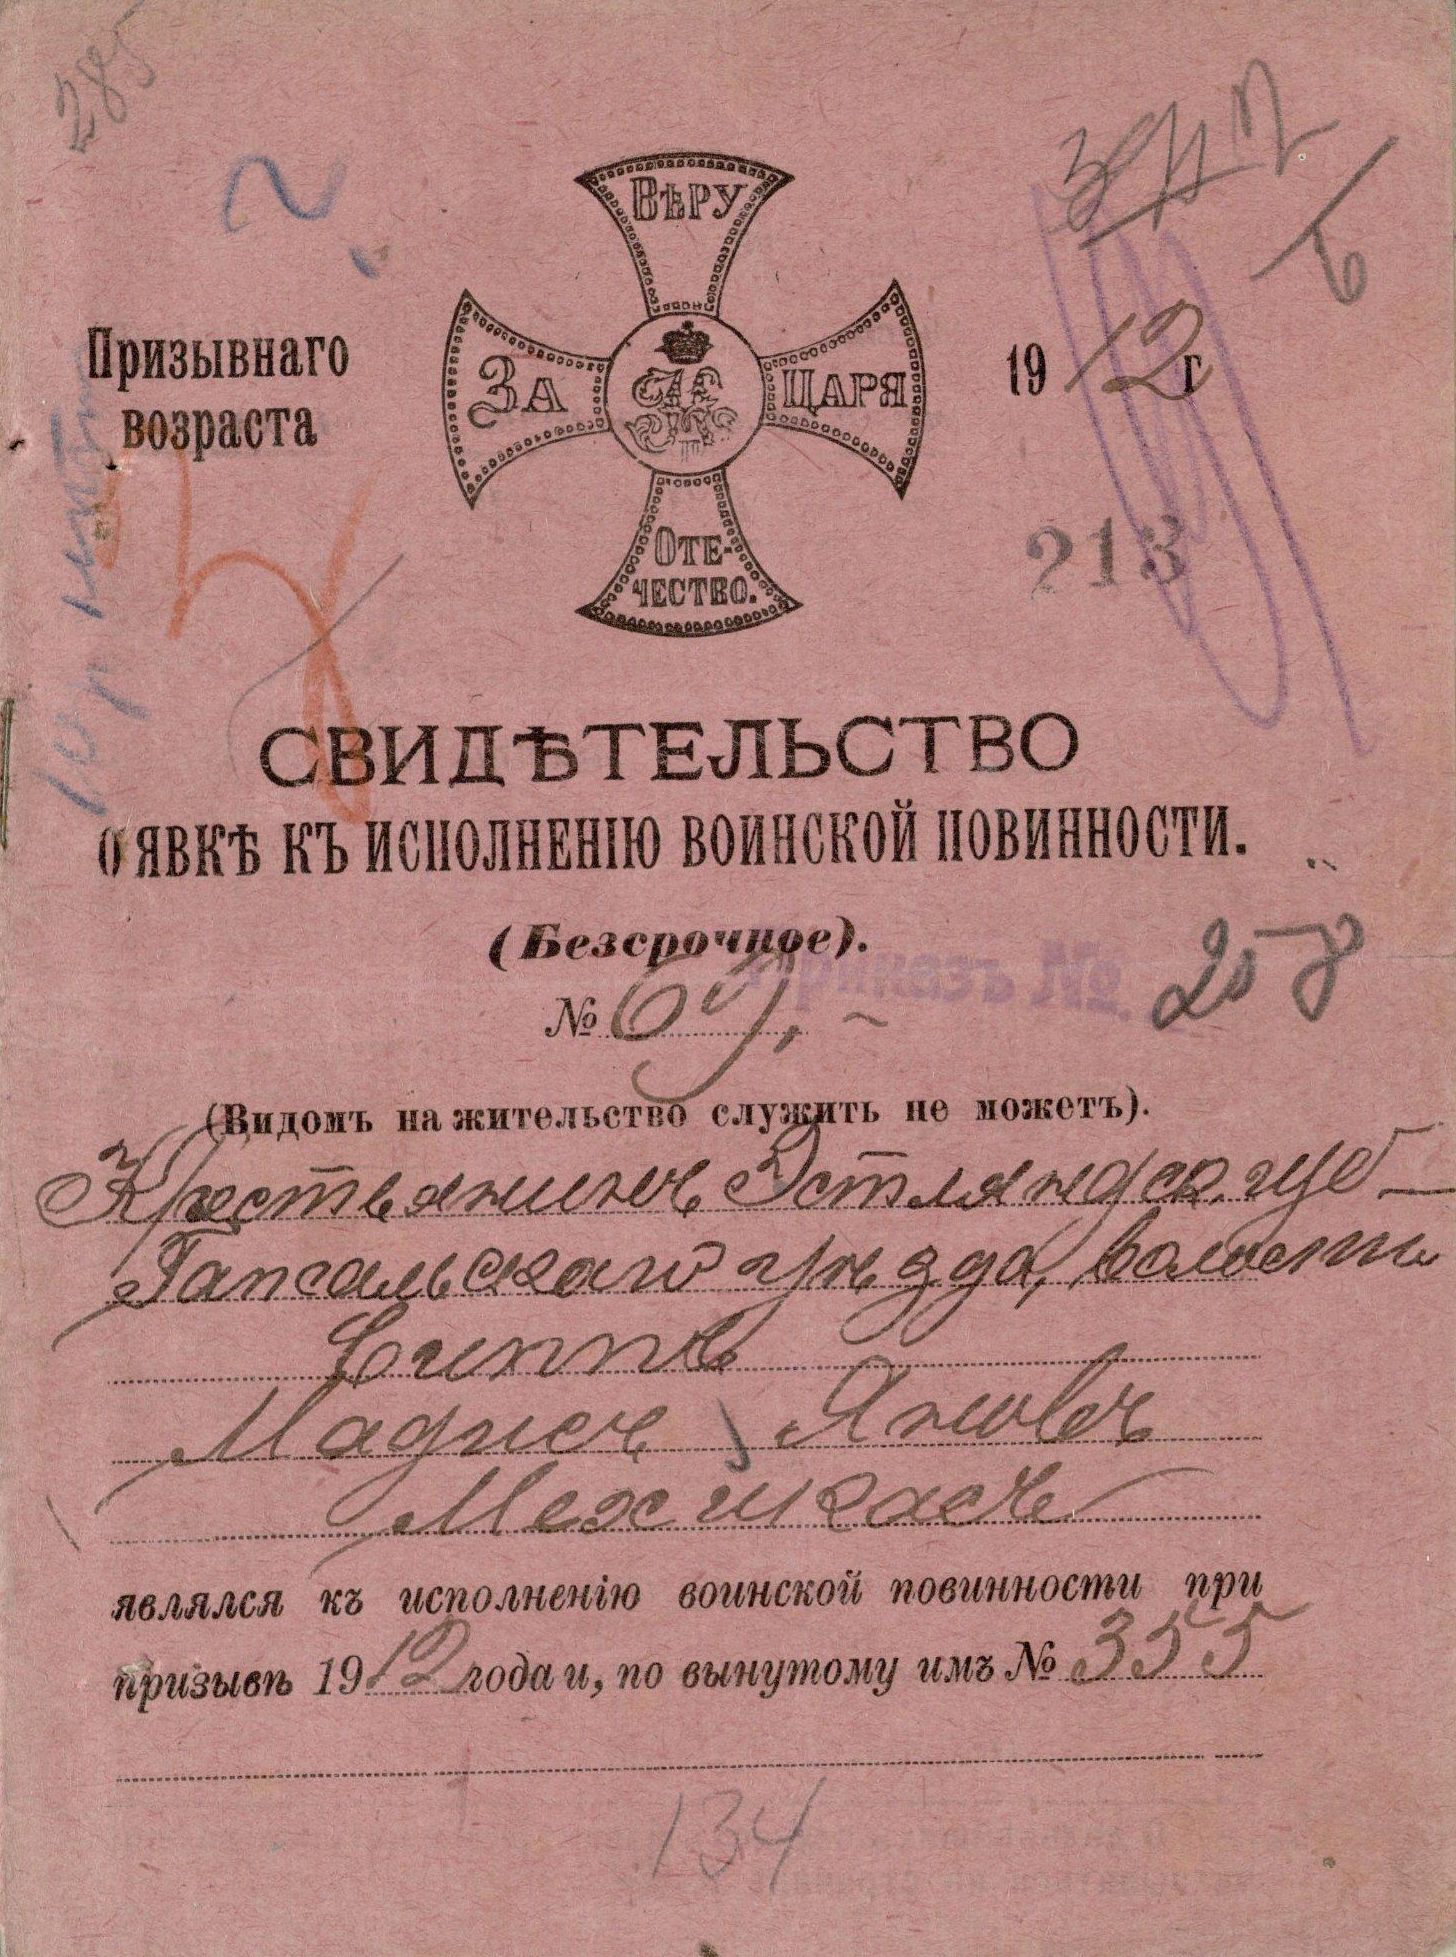 285
ВѢРУ
Призывнаго
возраста
ЗА
ЦАРЯ
1912 г
ОТЕ-
ЧЕСТВО.
213
СВИДѢТЕЛЬСТВО
О ЯВКѢ КЪ ИСПОЛНЕНІЮ ВОИНСКОЙ ПОВИННОСТИ.
(Безсрочное).
Приказъ №
258
№ 69,
(Видомъ на жительство служить не можетъ).
Крестьянинъ Эстляндск. губ
Гапсальскаго уѣзда, волости
Сиппъ
Мадисъ Яновъ
Мехикасъ
являлся къ исполненію воинской повинности при
призывѣ 1912 года и, по вынутому имъ № 355
134